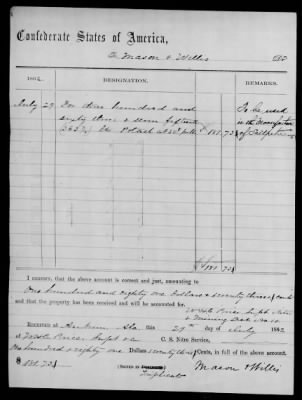 Confederate States of America,
To Mason & Willis Dr.
186 . DESIGNATION. REMARKS.
July 29 For three hundred and To be used
sixty three & seven fifteenths in the Manufacture
lbs Potash at 50¢ pr lb $ 181.73 of Saltpetre
$181.73
I CERTIFY, that the above account is correct and just, amounting to
One hundred and eighty one Dollars & seventy three cents
and that the property has been received and will be accounted for.
Supt Nitre
& Mining Dist No
RECEIVED AT this 29th day of July 1862
of C. S. Nitre Service,
One hundred & eighty one Dollars seventy three Cents, in full of the above account.
$ 181.73
[SIGNED IN
Mason & Willis